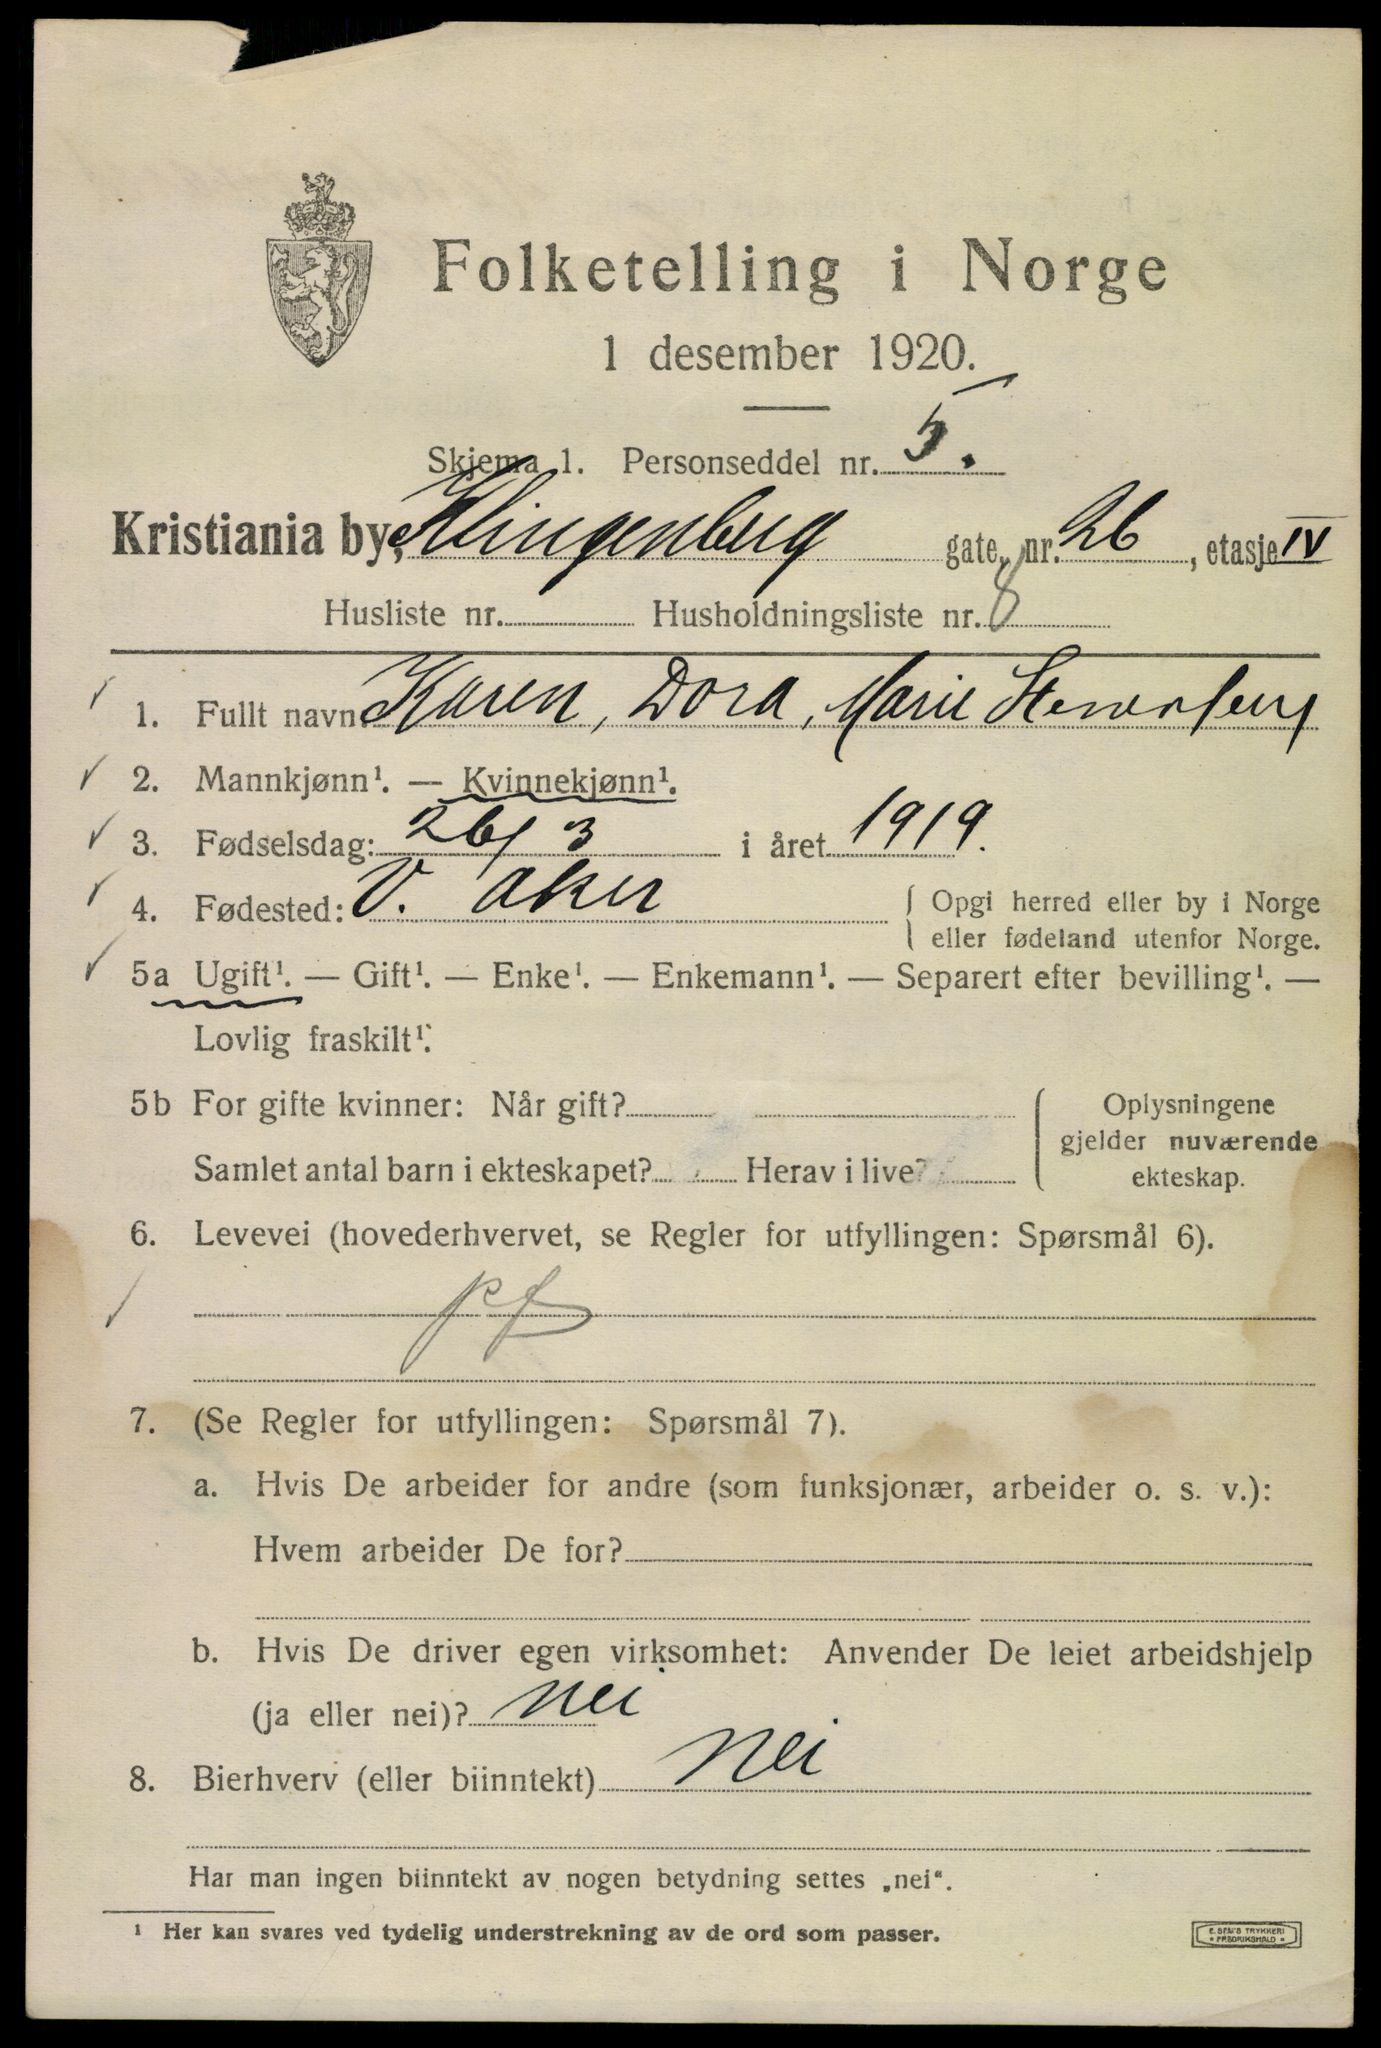 Folketelling i Norge
1 desember 1920.
Skjema 1. Personseddel nr. 5.
Kristiania by, Klingenberg gate, nr. 26, etasje IV
Husliste nr. Husholdningsliste nr. 8
1. Fullt navn Karen, Dora, Marie
2. Mannkjønn¹. — Kvinnekjønn¹.
3. Fødselsdag: 26/3 i året 1919.
4. Fødested: V. Aker
Opgi herred eller by i Norge
eller fødeland utenfor Norge.
5a Ugift¹. — Gift¹. — Enke¹. — Enkemann¹. — Separert efter bevilling¹. —
Lovlig fraskilt¹.
5b For gifte kvinner: Når gift?
Samlet antal barn i ekteskapet? Herav i live?
Oplysningene
gjelder nuværende
ekteskap.
6. Levevei (hovederhvervet, se Regler for utfyllingen: Spørsmål 6).
pf
7. (Se Regler for utfyllingen: Spørsmål 7).
a. Hvis De arbeider for andre (som funksjonær, arbeider o. s. v.):
Hvem arbeider De for?
b. Hvis De driver egen virksomhet: Anvender De leiet arbeidshjelp
(ja eller nei)? nei
8. Bierhverv (eller biinntekt) nei
Har man ingen biinntekt av nogen betydning settes „nei“.
¹ Her kan svares ved tydelig understrekning av de ord som passer.
E. SEM'S TRYKKERI
* FREDRIKSHALD *